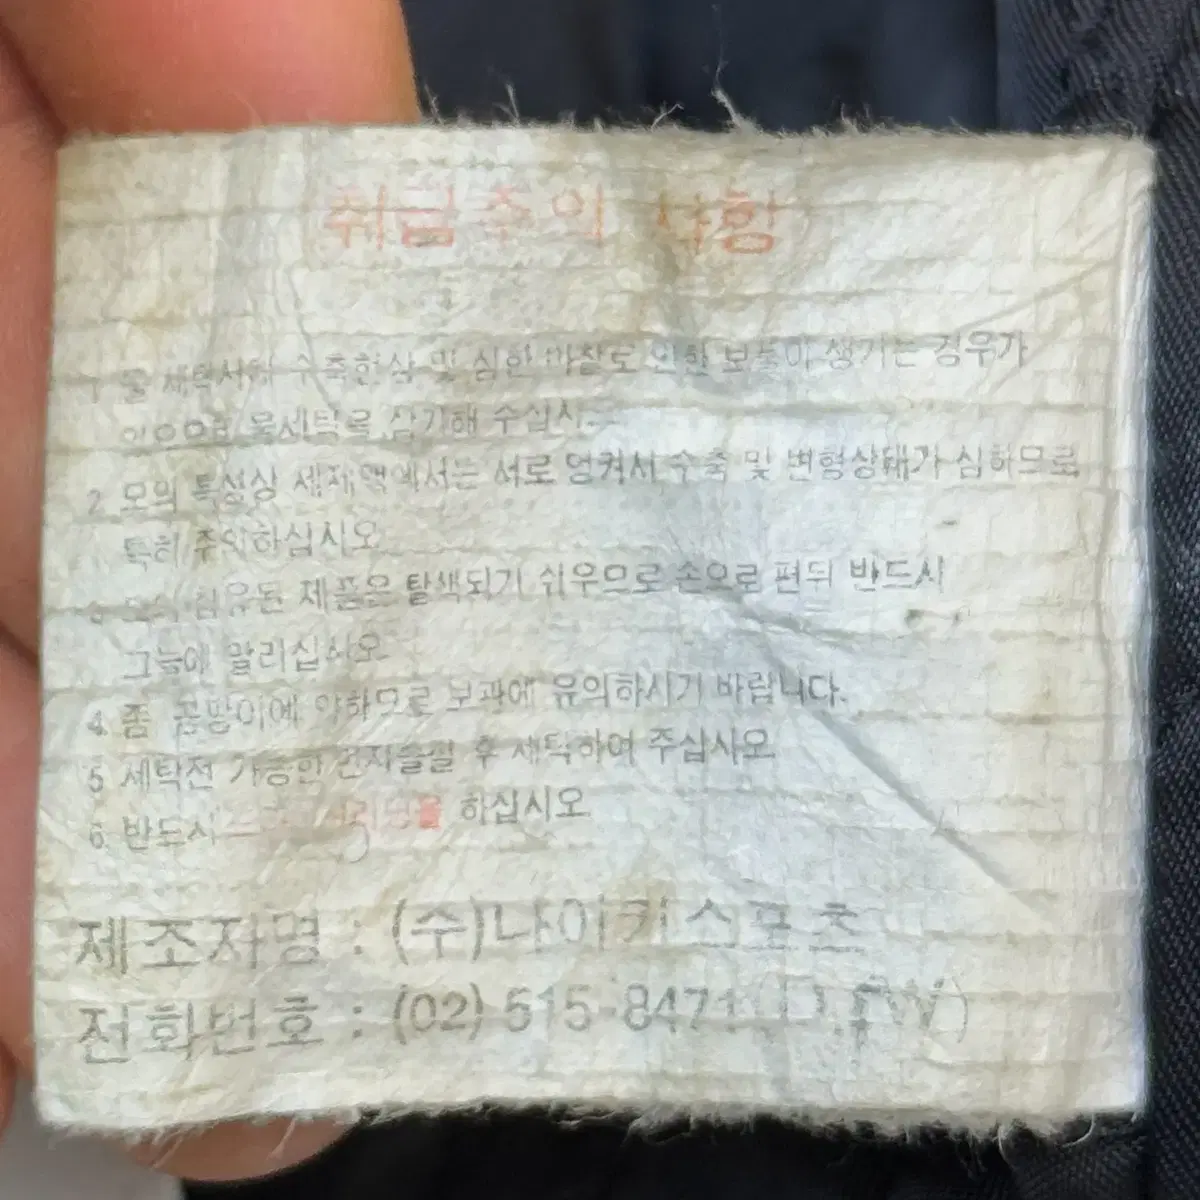 취급주의 사항
1 물 세탁시에 수축현상 및 심한 마찰로 인한 보풀이 생기는 경우가
있으므로 물세탁을 삼가해 주십시
2 모의 특성상 세제액에서는 서로 엉켜서 수축 및 변형상태가 심하므로
특히 주의하십시오
염유된 제품은 탈색되기 쉬우므로 손으로 편뒤 반드시
그늘에 말리십시오
4 좀 곰팡이에 약하므로 보관에 유의하시기 바랍니다.
5 세탁전 가능한 먼지를털 후 세탁하여 주십시오
6 반드시 하십시오
제조자명 : (주)나이키스포츠
전화번호 : (02) 515-8471